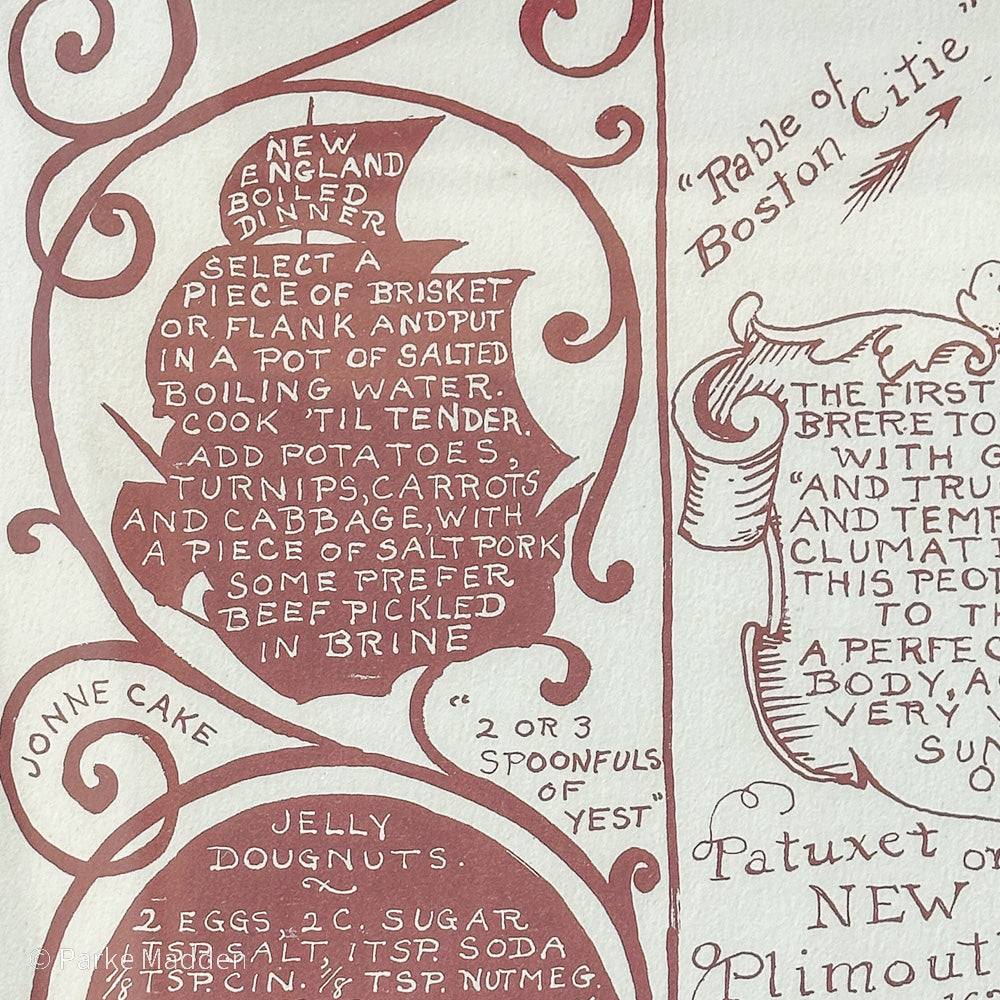 NEW
ENGLAND
BOILED
DINNER
SELECT A
PIECE OF BRISKET
OR FLANK AND PUT
IN A POT OF SALTED
BOILING WATER.
COOK 'TIL TENDER.
ADD POTATOES,
TURNIPS, CARROTS
AND CABBAGE, WITH
A PIECE OF SALT PORK
SOME PREFER
BEEF PICKLED
IN BRINE
JONNE CAKE
"2 OR 3
SPOONFULS
OF
YEST"
JELLY
DOUGNUTS.
2 EGGS, 2 C. SUGAR
1 TSP. SALT, 1 TSP. SODA
TSP. CIN. TSP. NUTMEG.
© Parke Madden
"Rable of
Boston Citie"
THE FIRST
BRERE TO
WITH G
"AND TRU
AND TEMP
CLUMATT
THIS PEOP
TO TH
A PERFEC
BODY, A
VERY
SUN
O
Patuxet or
NEW
Plimout